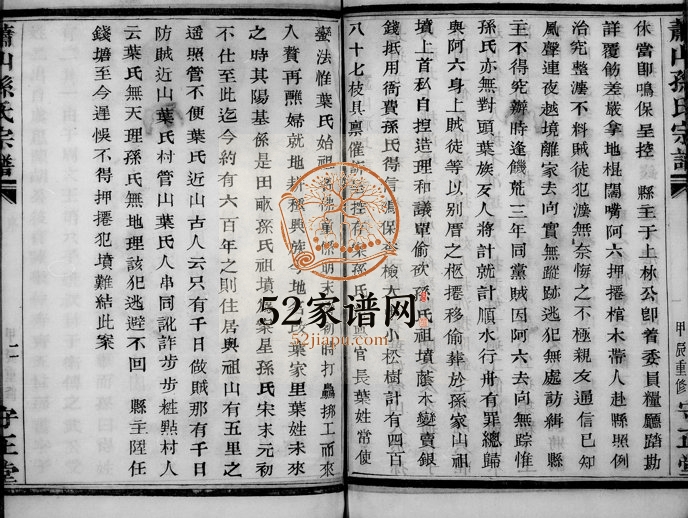 蕭山孫氏宗譜
休當卽鳴保呈控 縣主于上林公卽着委員糧廳踏勘
詳覆飭差嚴拿地棍闊嘴阿六押攞棺木帶人赴縣照例
治究整瀍不料賊徒犯瀍無奈悔之不極親友通信已知
風聲連夜越境離家去向實無蹤跡逃犯無處訪緝 縣
主不得究辦時逢饑荒三年同黨賊因阿六去向無踪惟
孫氏亦無對頭葉族歹人將計就計順水行舟有罪總歸
與阿六身上賊徒等以别厝之柩遷移偷葬於孫家山祖
墳上首私自捏造理和議單偷砍孫氏祖墳蔭木變賣銀
錢抵用衙費孫氏得信鳴保查檢大小松樹計有四百
八十七枝具禀催控存案孫氏官長葉姓當使
變法惟葉氏始祖打工而來
入贅再醮婦就地葉家里葉姓未來
之時其陽基係是田畝孫氏祖墳孫氏宋末元初
不仕至此迄今約有六百年之則住居與祖山有五里之
遥照管不便葉氏近山古人云只有千日做賊那有千日
防賊近山葉氏村管山葉氏人串同訛詐步步甡點村人
云葉氏無天理孫氏無地理該犯逃避不回 縣主陞任
錢塘至今遲悞不得押遷犯墳難結此案
甲辰重修
守正堂
蕭山孫氏宗譜
守正堂
52家谱网
52jiapu.com